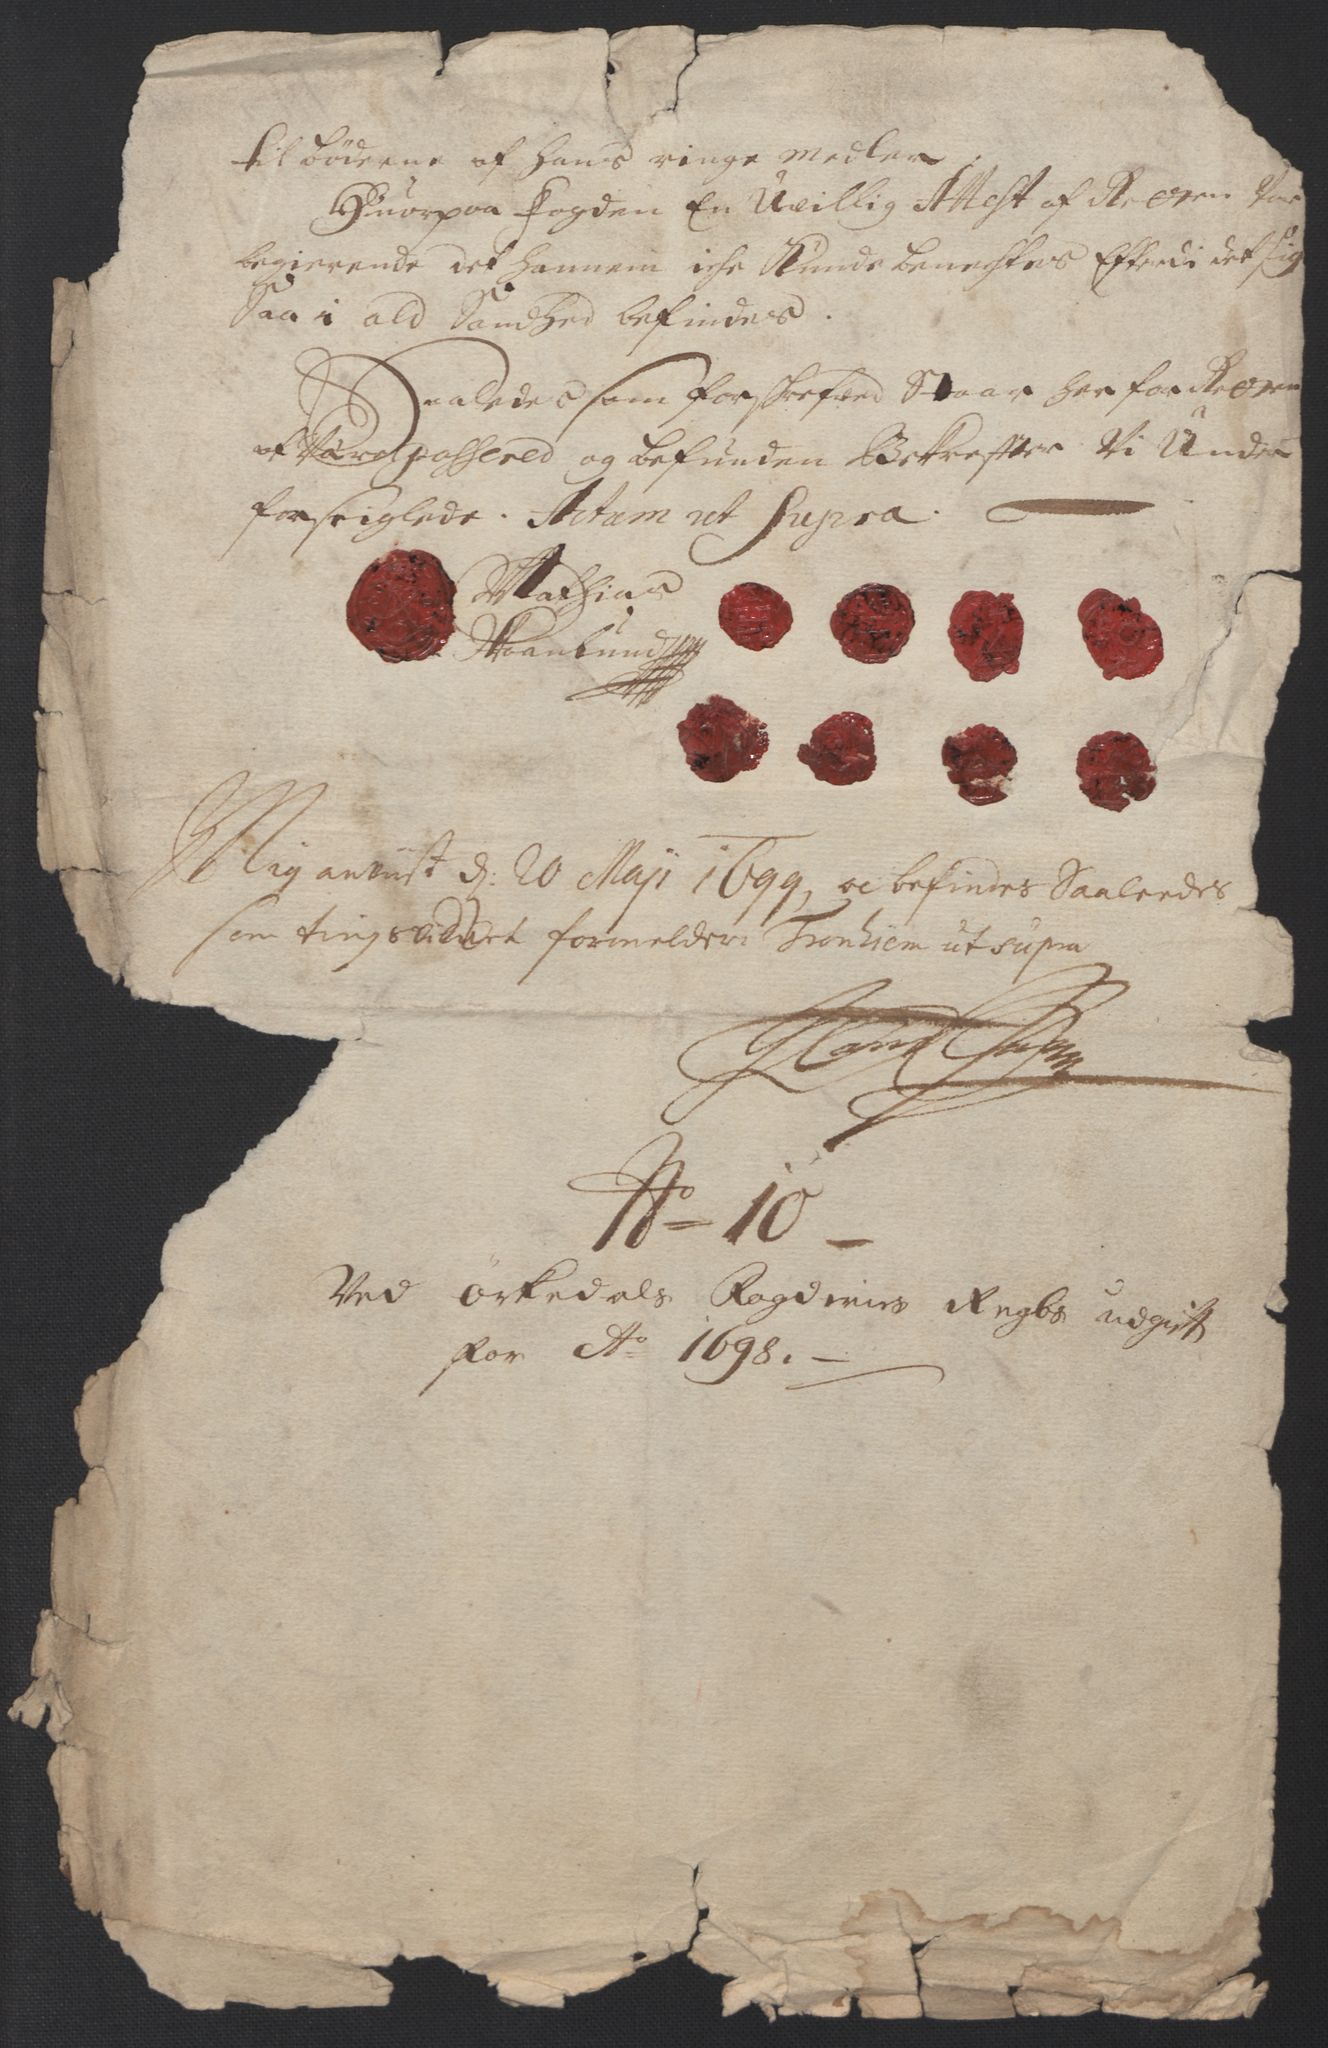 til bøderne af hans ringe medler.
Huorpaa Fogden En Uvillig Attest af Retten var
begierende det hannem iche Kunde benechtes Efterdi det sig
Saa i ald Sandhed befindes.
Saaledes som forschrefved Staar her for Retten
at være passered og befunden Bekrefter Vi Under
forseiglede. Actum ut Supra.
Mathias
Mig anviist d: 20 Maji 1699, oc befindes Saaleedes
som tingsvidnet formelder Tronhiem ut supra
No 10
Ved Örkedals Fogderies Regbs udgift
for Ao 1698.